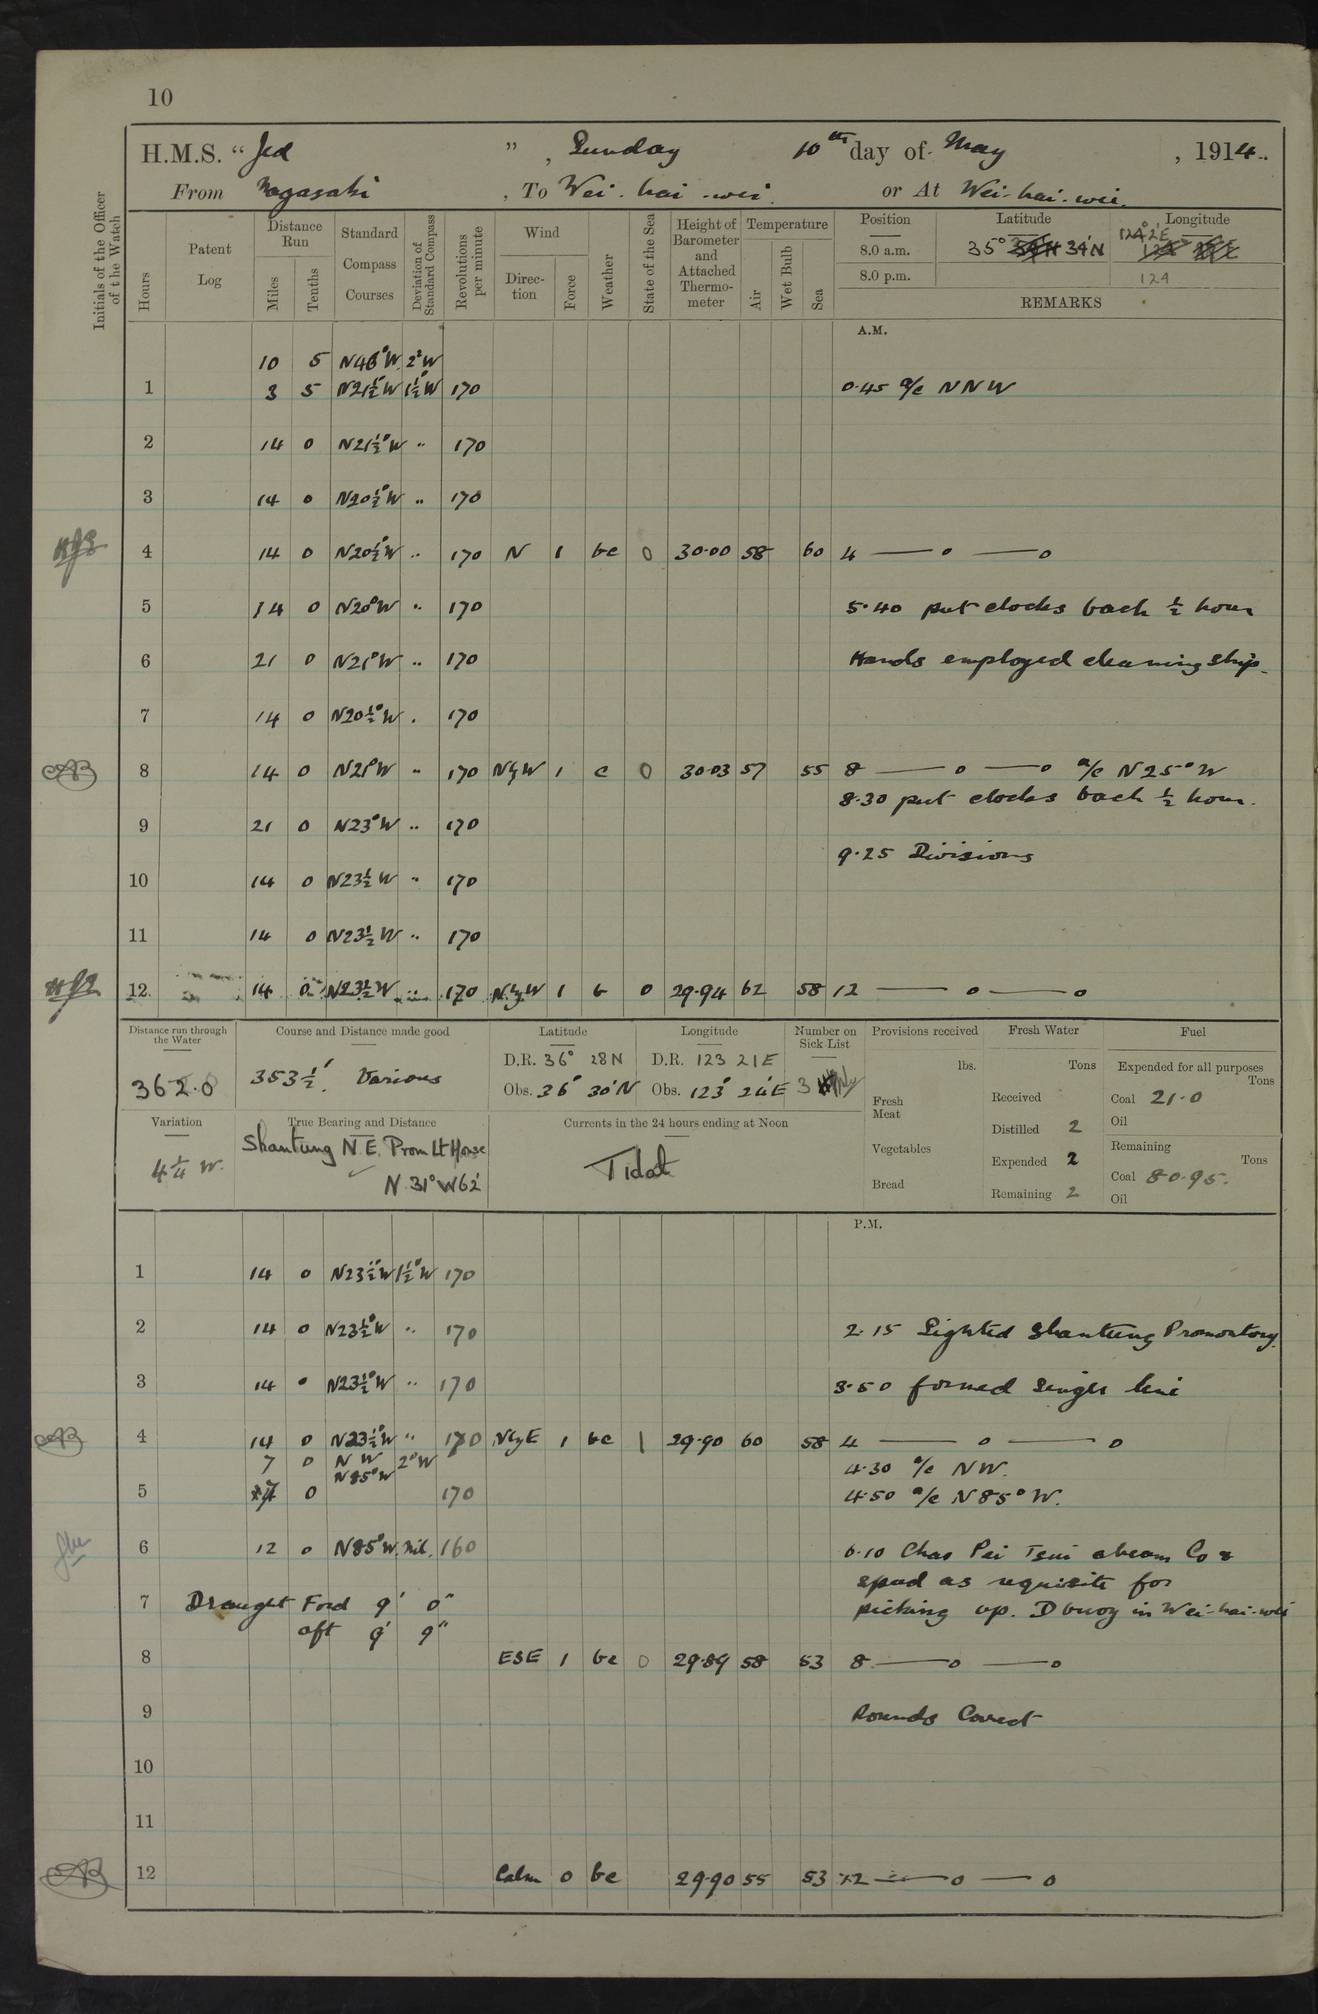 10
H.M.S. "Jed", Sunday 10th day of May, 1914.
From Nagasaki, To Wei-hai-wei. or At Wei-hai-wei.
Initials of the Officer of the Watch
Hours
Patent Log
Distance Run
Miles
Tenths
Standard Compass Courses
Deviation of Standard Compass
Revolutions per minute
Wind
Direction
Force
Weather
State of the Sea
Height of Barometer and Attached Thermometer
Temperature
Air
Wet Bulb
Sea
Position Latitude Longitude
8.0 a.m. 35° 34'N 124° 2'E
8.0 p.m. 124
REMARKS
A.M.
10 5 N46°W 2°W
1 3 5 N21½°W 1½°W 170 0.45 a/c NNW
2 14 0 N21½°W " 170
3 14 0 N20½°W " 170
4 14 0 N20½°W " 170 N 1 bc 0 30.00 58 60 4 — o — o
5 14 0 N20°W " 170 5.40 put clocks back ½ hour
6 21 0 N21°W " 170 Hands employed cleaning ship.
7 14 0 N20½°W " 170
8 14 0 N21°W " 170 NbyW 1 c 0 30.03 57 55 8 — o — o a/c N25°W
8.30 put clocks back ½ hour.
9 21 0 N23°W " 170
9.25 Divisions
10 14 0 N23½W " 170
11 14 0 N23½W " 170
12 14 0 N23½W " 170 NbyW 1 b 0 29.94 62 58 12 — o — o
Distance run through the Water
362.0
Course and Distance made good
353½' Various
Latitude
D.R. 36° 28N
Obs. 36° 30'N
Longitude
D.R. 123 21E
Obs. 123° 24'E
Number on Sick List
3
Provisions received
lbs.
Fresh Meat
Vegetables
Bread
Fresh Water
Tons
Received
Distilled 2
Expended 2
Remaining 2
Fuel
Expended for all purposes
Tons
Coal 21.0
Oil
Remaining
Tons
Coal 80.95.
Oil
Variation
4¼ W.
True Bearing and Distance
Shantung N.E. Prom Lt House
N 31° W 62'
Currents in the 24 hours ending at Noon
Tidal
P.M.
1 14 0 N23½°W 1½°W 170
2 14 0 N23½°W " 170 2.15 Sighted Shantung Promontory.
3 14 0 N23½°W " 170 3.50 formed single line
4 14 0 N23½°W " 170 NbyE 1 bc 1 29.90 60 58 4 — o — o
7 0 NW 2°W 4.30 a/c NW.
N85°W
5 7 0 170 4.50 a/c N85°W.
6 12 0 N85°W. nil. 160 6.10 Chao Pei Tsui abeam Co &
speed as requisite for
7 Draught Ford 9' 0" picking up. D buoy in Wei-hai-wei
aft 9' 9"
8 ESE 1 bc 0 29.89 58 53 8 — o — o
9 Rounds Correct
10
11
12 Calm 0 bc 29.90 55 53 12 — o — o